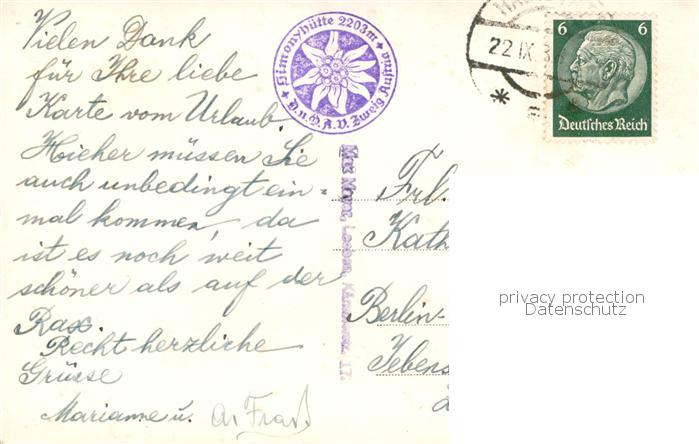 Vielen Dank
für Ihre liebe
Karte vom Urlaub.
Hieher müssen Sie
auch unbedingt ein=
mal kommen, da
ist es noch weit
schöner als auf der
Rax.
Recht herzliche
Grüsse
Marianne u.
Simonyhütte 2203m
D.u.Ö.A.V. Zweig Austria
22.IX.3
6 6
Deutsches Reich
Frl.
Kath
Berlin-
Jebens
privacy protection
Datenschutz